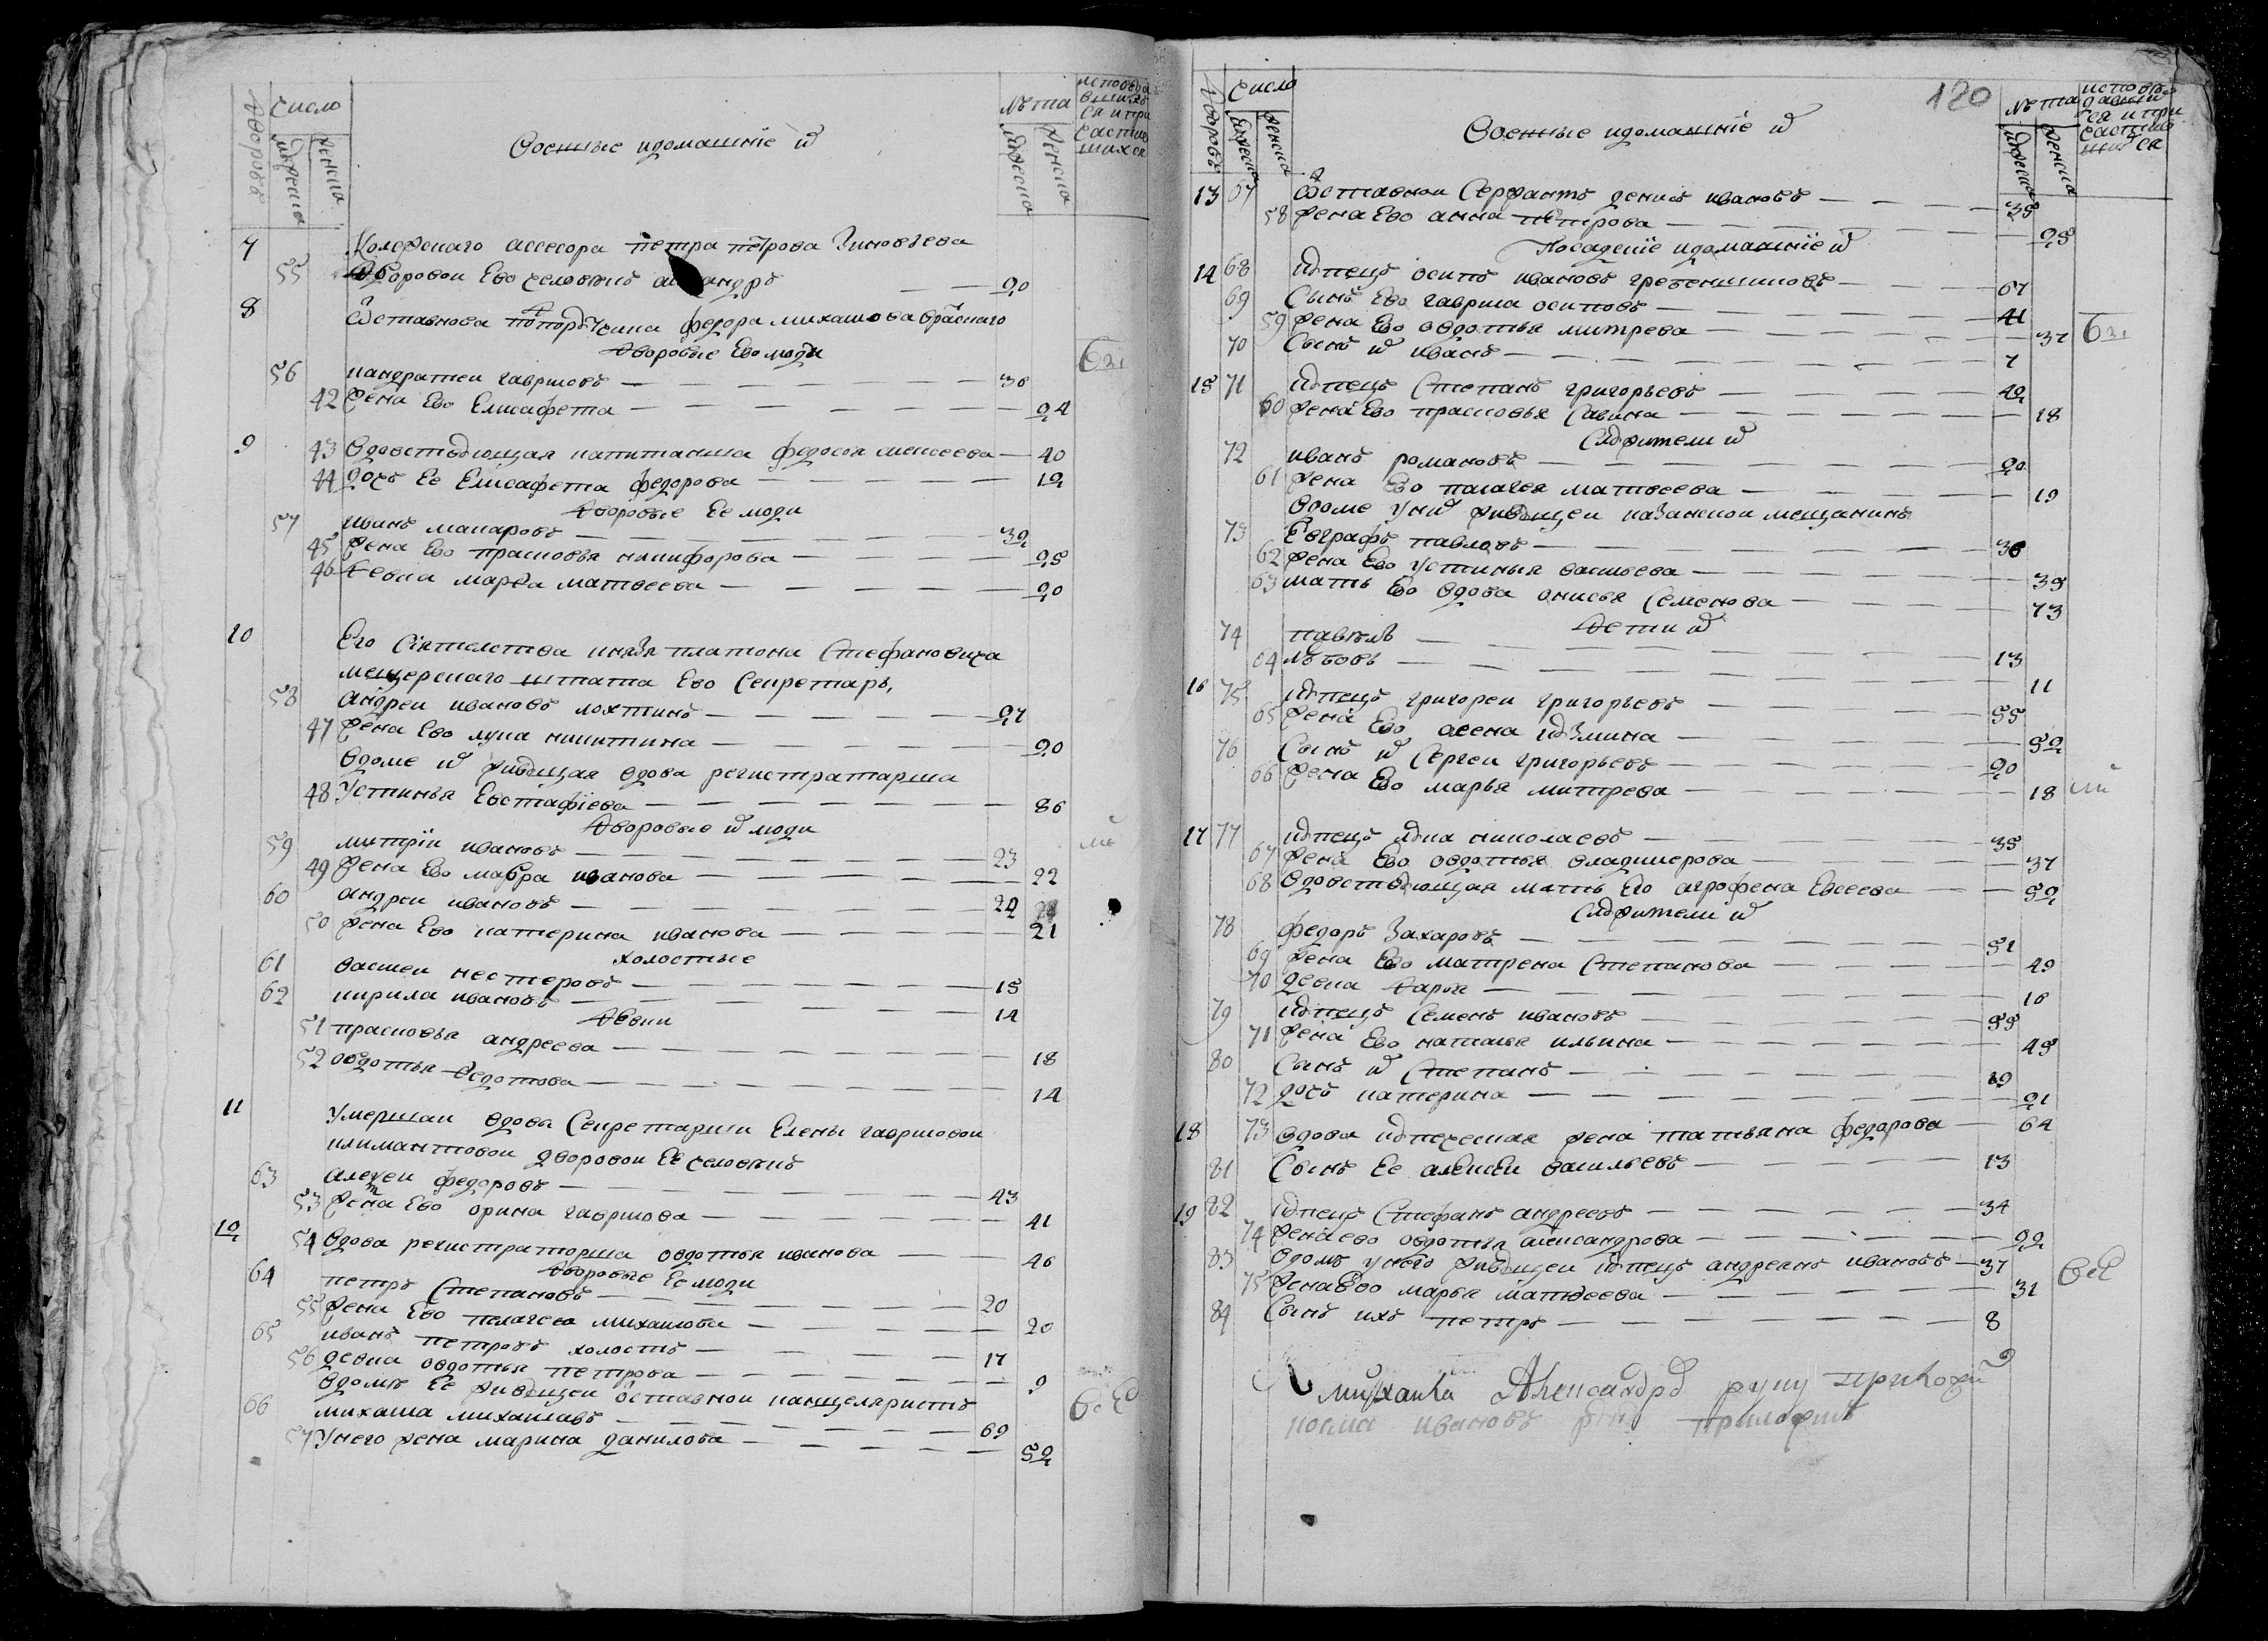 число
дворовъ
мужеска
женска
военные идомашнїе их
лѣта
мужеска
женска
исповѣда
вшихъ
ся ипри
частив
шихся
7 Колежскаго ассесора петра петрова Зиновьева
55 дворовои Ево человекъ андръ — — 20
8 Отставнова подпорутчика федора михаилова
дворовые Ево люди
56 кандратеи гавриловъ — 30
42 жена Ево Елисафета — 24
9 43 вдовствующая капитанша федосья алексеева — 40
44 дочь Ее Елисафета федорова — 12
дворовые Ее люди
57 иванъ макаровъ — 32
45 жена Ево прасковья никифорова — 25
46 девка марфа матвеева — 20
10 Его Сиятелства князя платона Стефановича
мещерскаго штата Ево Секретарь,
58 андреи ивановъ лохтинъ — 27
47 жена Ево лукия никитина — 20
вдоме их живущая вдова регистратарша
48 Устинья Евстафїева — 86
дворовые их люди
59 митрїи ивановъ — 23
49 жена Ево мавра иванова — 22
60 андреи ивановъ — 24
50 жена Ево катерина иванова — 21
холостые
61 василеи нестеровъ — 15
62 кирила ивановъ — 14
девки
51 прасковья андреева — 18
52 овдотья федотова — 14
11 Умершаи вдовы Секретарши Елены гавриловои
климантовои дворовои Ее человекъ
63 алексеи федоровъ — 43
53 жена Ево орина гаврилова — 41
12 54 вдова регистраторша овдотья иванова — 46
дворовые Ее люди
64 петръ Степановъ — 20
55 жена Ево пелагея михаилова — 20
65 иванъ петровъ холостъ — 17
56 девка овдотья петрова — 9
вдомѣ Ее живущеи отставнои канцеляристъ
66 михаила михаилавъ — 69
57 Унего жена марина данилова — 52
120
число
дворовъ
мужеска
женска
военные идомашнїе их
лѣта
мужеска
женска
исповѣ
давши
ся ипри
частив
шихся
13 67 Отставнои Сержантъ денисъ ивановъ — 35
58 жена Ево анна петрова — 25
Посадскїе идомашнїе их
14 68 купецъ осипъ ивановъ гребенщиковъ — 67
69 Сынъ Ево гаврила осиповъ — 41
59 жена Ево овдотья митрева — 37
70 Сынъ их иванъ — 7
15 71 купецъ Степанъ григорьевъ — 42
60 жена Ево прасковья Савина — 18
Служители их
72 иванъ романовъ — 20
61 жена Ево палагея матвеева — 19
вдоме Уних живущеи казанскои мещанинъ
73 Евграфъ павловъ — 36
62 жена Ево Устинья васильева — 35
63 мать Ево вдова анисья Семенова — 73
дети их
74 павелъ — 13
64 любовь — 11
16 75 купецъ григореи григорьевъ — 55
65 жена Ево аксена кузмина — 52
76 Сынъ их Сергеи григорьевъ — 20
66 жена Ево марья митрева — 18
17 77 купецъ лука николаевъ — 35
67 жена Ево овдотья владимерова — 37
68 вдовствующая мать Его аграфена Евсеева — 52
Служители их
78 федоръ Захаровъ — 51
69 жена Ево матрена Степанова — 49
70 девка дарья — 16
79 купецъ Семенъ ивановъ — 55
71 жена Ево наталья ильина — 45
80 Сынъ их Степанъ — 19
72 дочь катерина — 21
18 73 вдова купеческая жена татьяна федорова — 64
81 Сынъ Ее алексеи васильевъ — 13
19 82 купецъ Стефанъ андреевъ — 34
74 жена ево овдотья александрова — 22
83 вдомѣ унего живущеи купецъ андреянъ ивановъ — 37
75 жена Ево марья матвеева — 31
84 Сынъ ихъ петръ — 8
руку приложил
ивановъ руку приложилъ